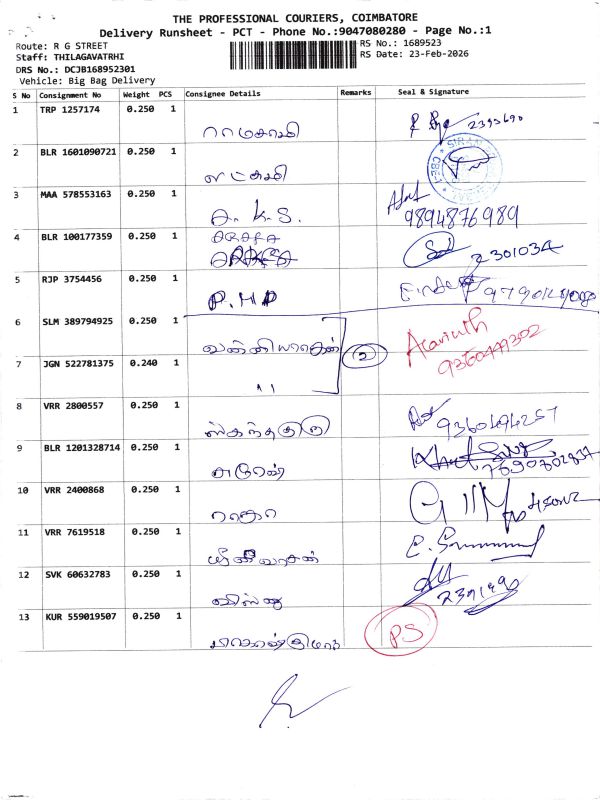 THE PROFESSIONAL COURIERS, COIMBATORE
Delivery Runsheet - PCT - Phone No.:9047080280 - Page No.:1
Route: R G STREET
Staff: THILAGAVATRHI
DRS No.: DCJB168952301
Vehicle: Big Bag Delivery
RS No.: 1689523
RS Date: 23-Feb-2026
S No Consignment No Weight PCS Consignee Details Remarks Seal & Signature
1 TRP 1257174 0.250 1 ராமசாமி 2395690
2 BLR 1601090721 0.250 1 லட்சுமி
3 MAA 578553163 0.250 1 A.K.S. 9894876989
4 BLR 100177359 0.250 1 ARAFA 2301034
5 RJP 3754456 0.250 1 P.H.P
6 SLM 389794925 0.250 1 Aravinth
7 JGN 522781375 0.240 1 " 2 9360449302
8 VRR 2800557 0.250 1 ஸ்கந்தகுரு
9 BLR 1201328714 0.250 1
10 VRR 2400868 0.250 1 ராதா
11 VRR 7619518 0.250 1 ஸ்ரீனிவாசன்
12 SVK 60632783 0.250 1 விஸ்ணு
13 KUR 559019507 0.250 1 PS